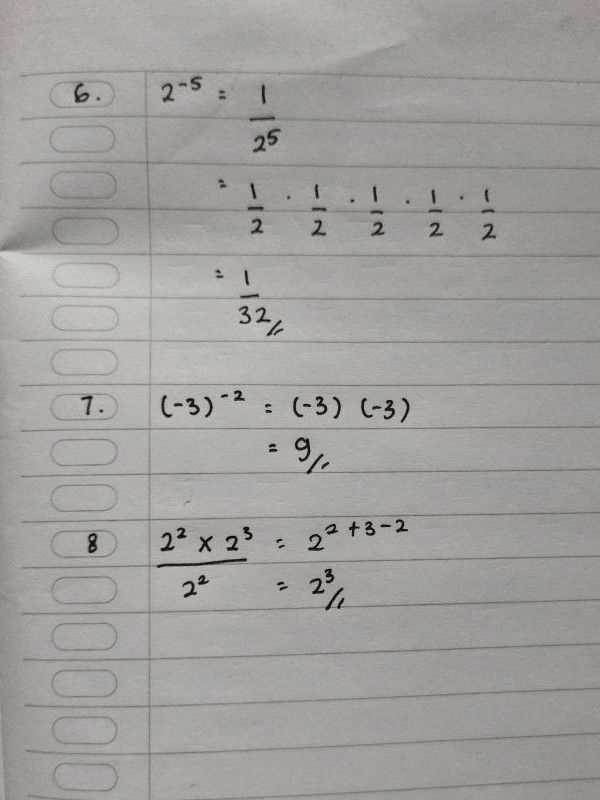 6. 2⁻⁵ = 1/2⁵
= 1/2 · 1/2 · 1/2 · 1/2 · 1/2
= 1/32 //
7. (-3)⁻² = (-3) (-3)
= 9 //
8 2² x 2³ / 2² = 2²⁺³⁻²
= 2³ //